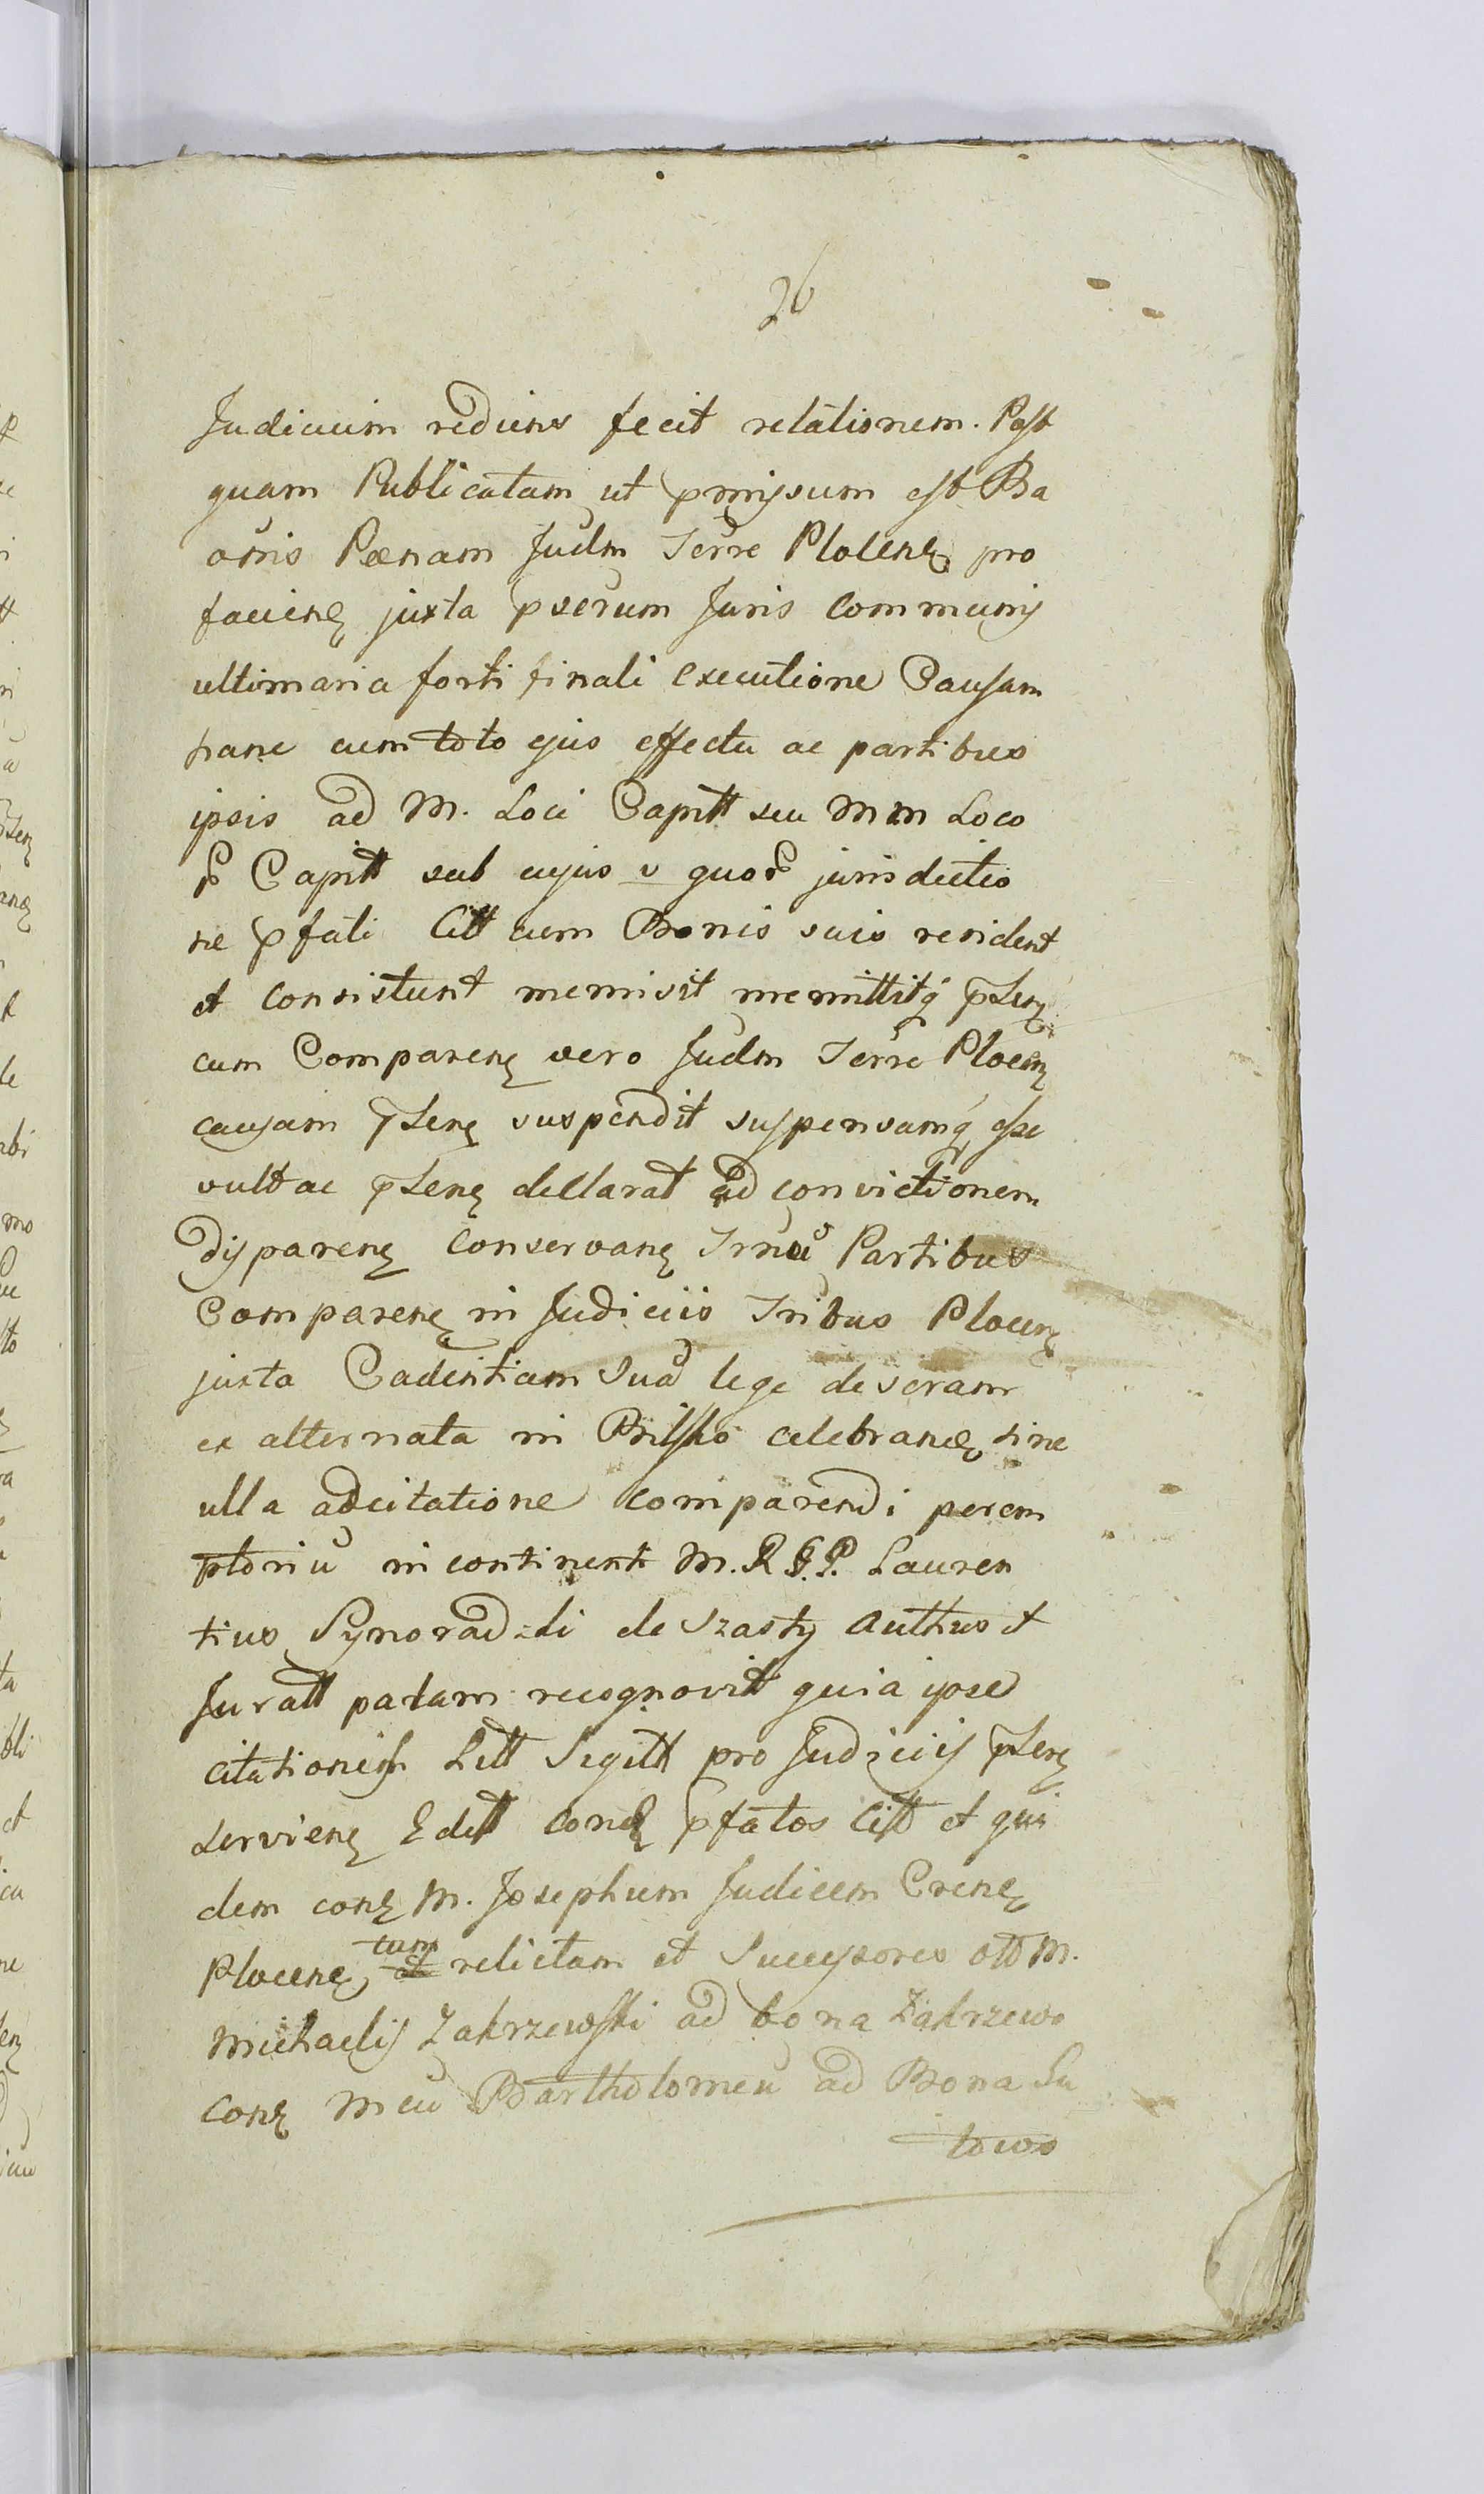 26
Judicium rediens fecit relationem. Post
quam Publicatam ut pmissum est Ba
onis Poenam Judm Terre Plocens pro
faciens juxta pscrum Juris Communis
ultimaria forti finali executione Causam
hanc cum toto ejus effectu ac partibus
ipsis ad M. Loci Capitt seu Mm Loco
Capitt sub cujus v quor jurisdictio
ne pfati Citt cum Bonis suis resident
et consistunt remisit remittitq pSens
cum Comparens vero Judm Terre Plocens
causam pSens suspendit suspensamq esse
vult ac pSens declarat ad convictionem
Disparens Conservans Trnu Partibus
Comparens in Judiciis Tribus Plocens
juxta Cadentiam Sua lege de seram
ex alternata in Bilsko celebrans sine
ulla adcitatione comparendi perem
ptoriu in continenti M.R.G.P. Lauren
tius Synoradzki de Szasty Authus et
Juratt palam recognovit quia ipse
citationes Litt Sigitt pro Judiciis pSens
serviens Editt cons pfatos Citt et qui
dem cons M. Josephum Judicem Crens
Plocens, tum relictam et Successores ott M.
Michaelis Zakrzewski ad bona Zakrzewo
cons Mcu Bartholomeu ad Bona Lu
towo